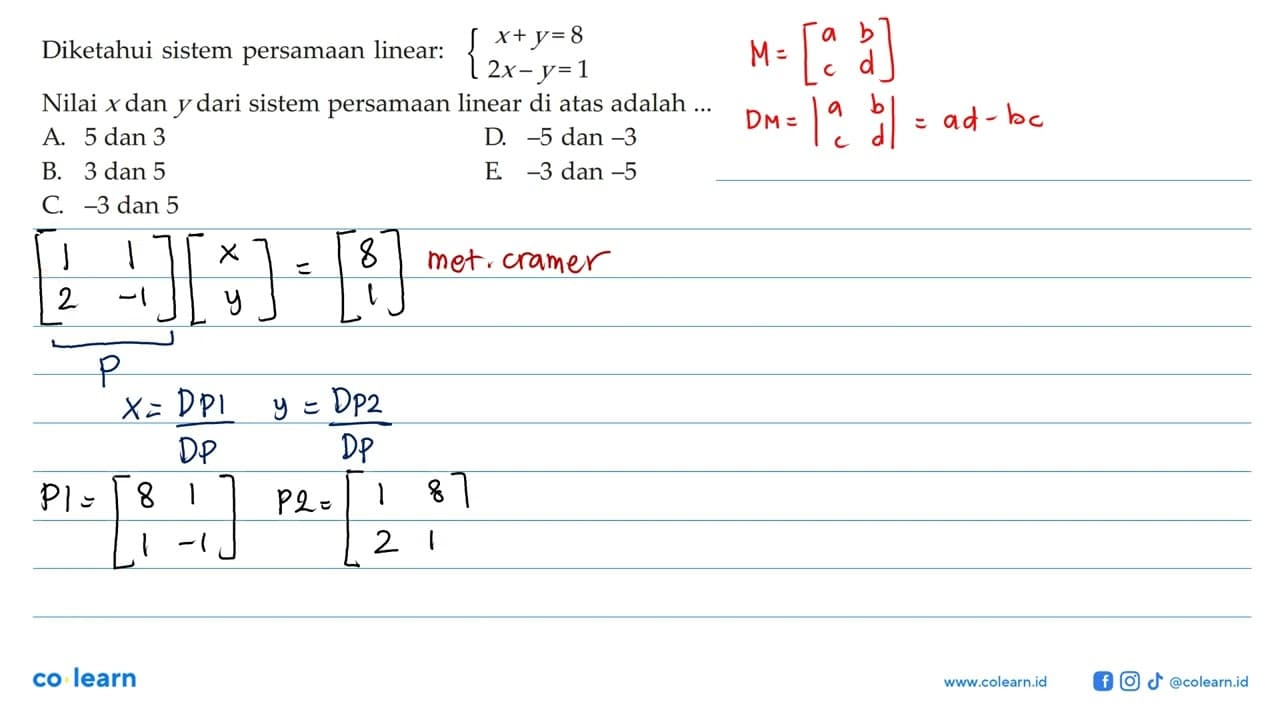 Diketahui sistem persamaan linear: { x + y = 8
2x − y = 1
Nilai x dan y dari sistem persamaan linear di atas adalah ...
A. 5 dan 3
D. –5 dan –3
B. 3 dan 5
E. –3 dan –5
C. –3 dan 5
M = [a b
c d]
DM = |a b
c d| = ad - bc
[1 1
2 -1] [x
y] = [8
1] met. cramer
P
x = DP1/DP y = DP2/DP
P1 = [8 1
1 -1] P2 = [1 8
2 1
co learn
www.colearn.id
@colearn.id